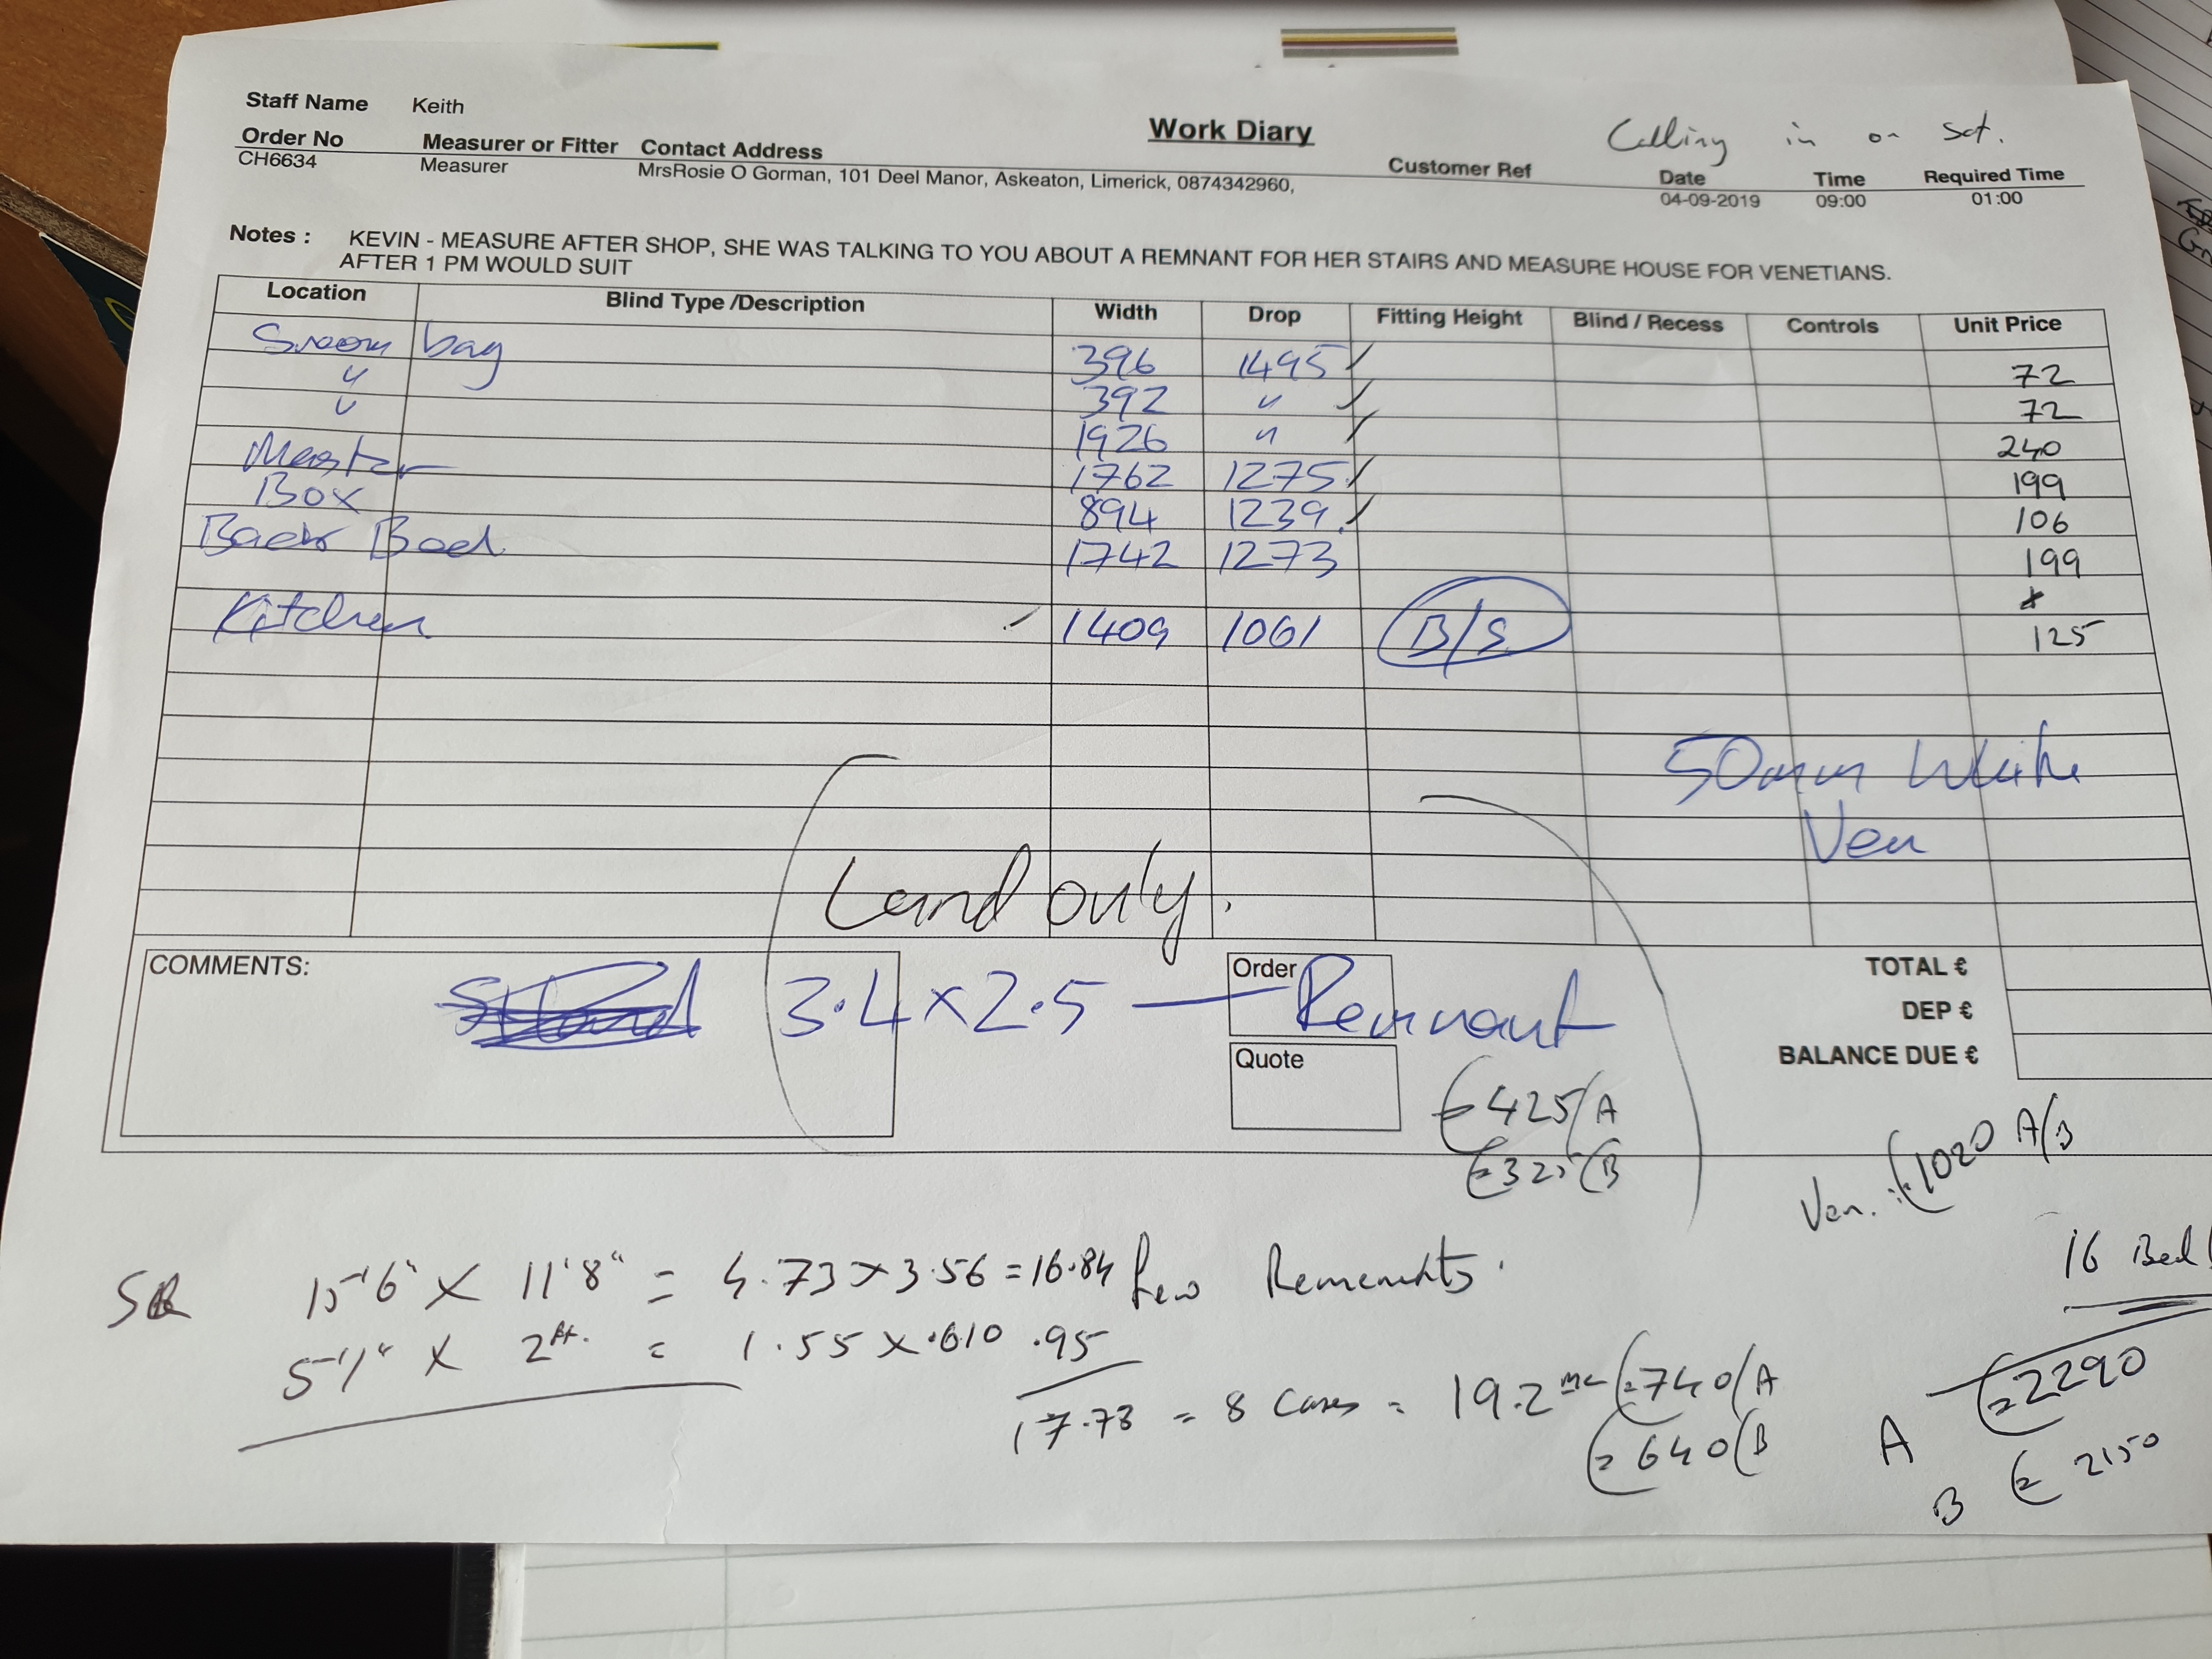 Staff Name Keith
Work Diary
Calling in on Sat.
Order No Measurer or Fitter Contact Address Customer Ref Date Time Required Time
CH6634 Measurer MrsRosie O Gorman, 101 Deel Manor, Askeaton, Limerick, 0874342960, 04-09-2019 09:00 01:00
Notes : KEVIN - MEASURE AFTER SHOP, SHE WAS TALKING TO YOU ABOUT A REMNANT FOR HER STAIRS AND MEASURE HOUSE FOR VENETIANS.
AFTER 1 PM WOULD SUIT
Location Blind Type /Description Width Drop Fitting Height Blind / Recess Controls Unit Price
Sroom bay 396 1495 ✓ 72
" 392 " ✓ 72
" 1926 " ✓ 240
Master 1762 1275 ✓ 199
Box 894 1239 ✓ 106
Back Bed 1742 1273 199
Kitchen ✓ 1409 1061 B/S 125
50mm White
Ven
Land only.
COMMENTS: 3.4 x 2.5 — Remnant
Order
Quote
TOTAL €
DEP €
BALANCE DUE €
€425/A
€325/B
Ven. €1020 A/B
16 Bed
SR 15'6" x 11'8" = 4.73 x 3.56 = 16.84 few Remenants.
5'1" x 2ft. = 1.55 x .610 .95
17.73 = 8 Cases = 19.2 €740/A
€640/B
A €2290
B €2150